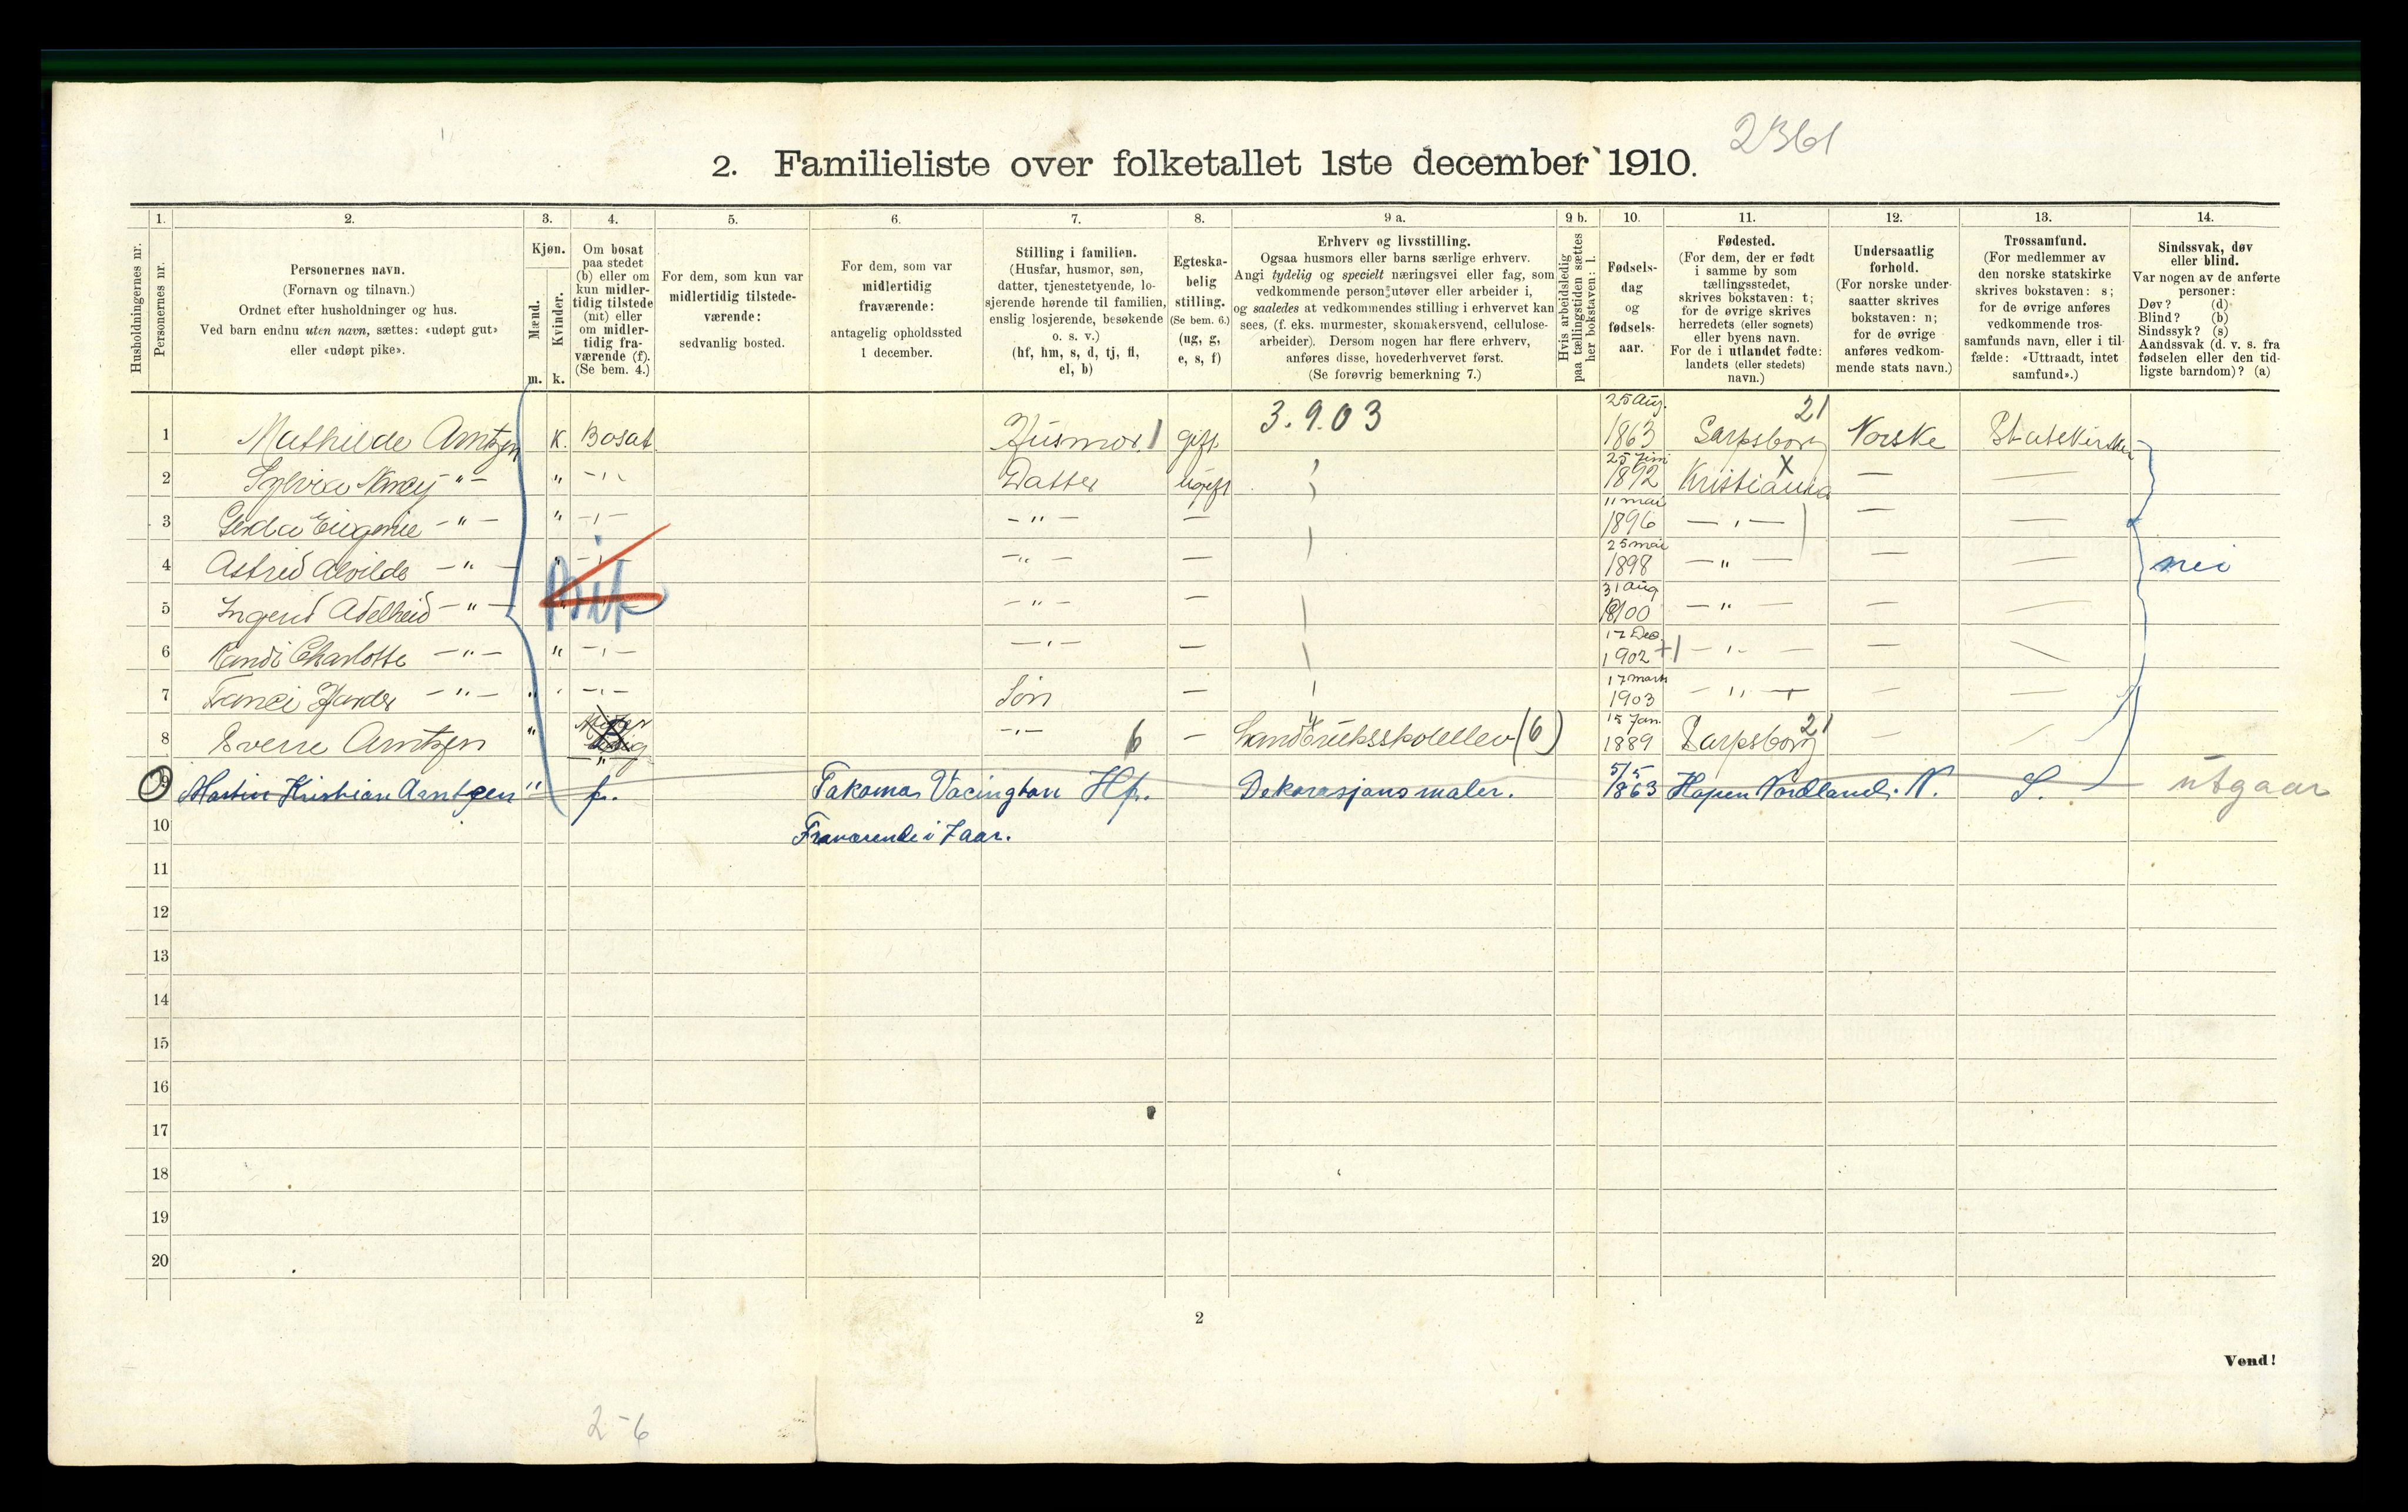 2361
2. Familieliste over folketallet 1ste december 1910.
1. 2. 3. 4. 5. 6. 7. 8. 9 a. 9 b. 10. 11. 12. 13. 14.
Husholdningernes nr.
Personernes nr.
Personernes navn.
(Fornavn og tilnavn.)
Ordnet efter husholdninger og hus.
Ved barn endnu uten navn, sættes: «udøpt gut»
eller «udøpt pike».
Kjøn.
Mænd.
Kvinder.
m. k.
Om bosat
paa stedet
(b) eller om
kun midler-
tidig tilstede
(mt) eller
om midler-
tidig fra-
værende (f).
(Se bem. 4.)
For dem, som kun var
midlertidig tilstede-
værende:
sedvanlig bosted.
For dem, som var
midlertidig
fraværende:
antagelig opholdssted
1 december.
Stilling i familien.
(Husfar, husmor, søn,
datter, tjenestetyende, lo-
sjerende hørende til familien,
enslig losjerende, besøkende
o. s. v.)
(hf, hm, s, d, tj, fl,
el, b)
Egteska-
belig
stilling.
(Se bem. 6.)
(ug, g,
e, s, f)
Erhverv og livsstilling.
Ogsaa husmors eller barns særlige erhverv.
Angi tydelig og specielt næringsvei eller fag, som
vedkommende person utøver eller arbeider i,
og saaledes at vedkommendes stilling i erhvervet kan
sees, (f. eks. murmester, skomakersvend, cellulose-
arbeider). Dersom nogen har flere erhverv,
anføres disse, hovederhvervet først.
(Se forøvrig bemerkning 7.)
Hvis arbeidsledig
paa tællingstiden sættes
her bokstaven: l.
Fødsels-
dag
og
fødsels-
aar.
Fødested.
(For dem, der er født
i samme by som
tællingsstedet,
skrives bokstaven: t;
for de øvrige skrives
herredets (eller sognets)
eller byens navn.
For de i utlandet fødte:
landets (eller stedets)
navn.)
Undersaatlig
forhold.
(For norske under-
saatter skrives
bokstaven: n;
for de øvrige
anføres vedkom-
mende stats navn.)
Trossamfund.
(For medlemmer av
den norske statskirke
skrives bokstaven: s;
for de øvrige anføres
vedkommende tros-
samfunds navn, eller i til-
fælde: «Uttraadt, intet
samfund».)
Sindssvak, døv
eller blind.
Var nogen av de anførte
personer:
Døv? (d)
Blind? (b)
Sindssyk? (s)
Aandssvak (d. v. s. fra
fødselen eller den tid-
ligste barndom)? (a)
3.9.03
1 Mathilde Arntzen K. Bosat Husmor 1 gift 25 Aug. 1863 Sarpsborg 21 Norske Statskirken
2 Sylvia Nancy -"- " -"- Datter Ugift 25 Juni 1892 Kristiania X — —
3 Gerda Eugenie -"- " -"- -"- — 11 mai 1896 -"- — —
4 Astrid Alvilde -"- " -"- -"- — 25 mai 1898 -"- — — nei
5 Ingerid Adelheid -"- " -"- -"- — 31 Aug 1900 -"- — —
6 Randi Charlotte -"- " -"- -"- — 17 Des 1902 -"- — —
7 Harder -"- " -"- Søn — 17 marts 1903 -"- — —
8 Sverre Arntzen " -"- 6 — Landbruksskoleelev (6) 15 Jan. 1889 Sarpsborg 21 — —
9 Martin Kristian Arntzen " fr. Takoma Vacington Hf. Dekorasjonsmaler. 5/5 1863 Hopen Nordland. N. S. utgaar
10 Fraværende i 7 aar.
11
12
13
14
15
16
17
18
19
20
2
Vend!
2-6